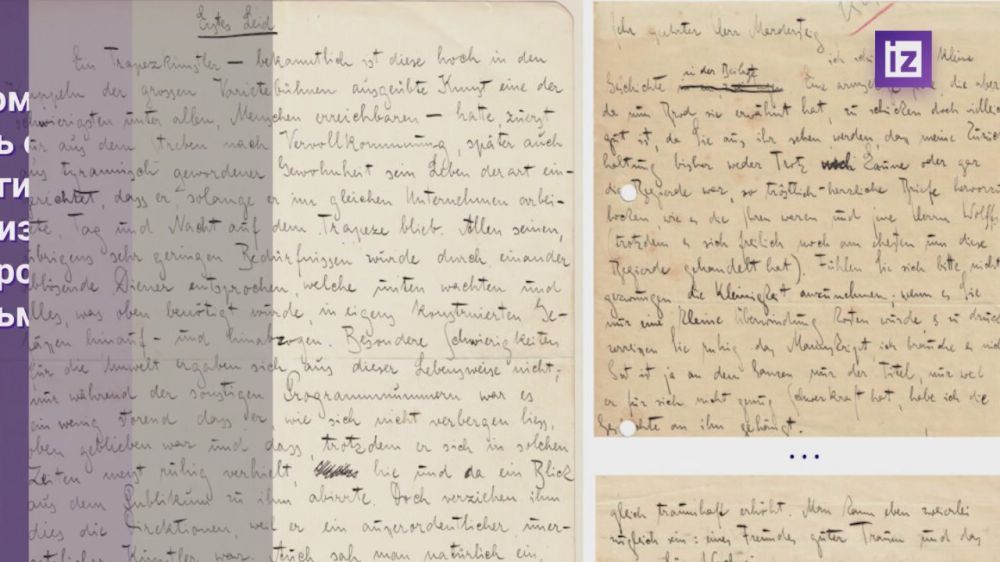 Erstes Leid
Ein Trapezkünstler — bekanntlich ist diese hoch in den
Kuppeln der grossen Varietebühnen ausgeübte Kunst eine der
schwierigsten unter allen, Menschen erreichbaren — hatte, zuerst
nur aus dem Streben nach Vervollkommnung, später auch
aus tyrannisch gewordener Gewohnheit sein Leben derart ein-
gerichtet, dass er, solange er im gleichen Unternehmen arbei-
tete, Tag und Nacht auf dem Trapeze blieb. Allen seinen,
übrigens sehr geringen Bedürfnissen wurde durch einander
ablösende Diener entsprochen, welche unten wachten und
alles, was oben benötigt wurde, in eigens konstruierten Ge-
fässen hinauf- und hinabzogen. Besondere Schwierigkeiten
für die Umwelt ergaben sich aus dieser Lebensweise nicht;
nur während der sonstigen Programmnummern war es
ein wenig störend dass er, wie sich nicht verbergen liess,
oben geblieben war und dass, trotzdem er sich in solchen
Zeiten meist ruhig verhielt, hie und da ein Blick
aus dem Publikum zu ihm abirrte. Doch verziehen ihm
dies die Direktionen, weil er ein ausserordentlicher uner-
setzlicher Künstler war. Auch sah man natürlich ein,
ом
ь с
ги
из
ро
ьм
iz
Sehr geehrter Herr Mardersteig
kleine
Geschichte in der Beilage Eine die aber
da nun Brod sie erwähnt hat, zu schicken doch
gut ist, da Sie aus ihr sehen werden, dass meine Zurück
haltung bisher weder Trotz noch Laune oder gar
die Begierde war, so tröstlich-herzliche Briefe hervorzu
locken wie es die Ihren waren und jene Herrn Wolffs
(trotzdem es sich freilich noch am ehesten um diese
Begierde gehandelt hat). Fühlen Sie sich bitte nicht
gezwungen die Kleinigkeit anzunehmen; wenn es Sie
nur eine kleine Überwindung kosten würde, es zu
zerreissen Sie ruhig das Manuskript, ich brauche es
Gut ist ja an dem Ganzen nur der Titel, nur weil
er für sich nicht genug Schwerkraft hat, habe ich die
Geschichte an ihn gehängt.
...
gleich traumhaft erhöht. Man kann eben zweierlei
zugleich sein: eines Freundes guter Traum und das